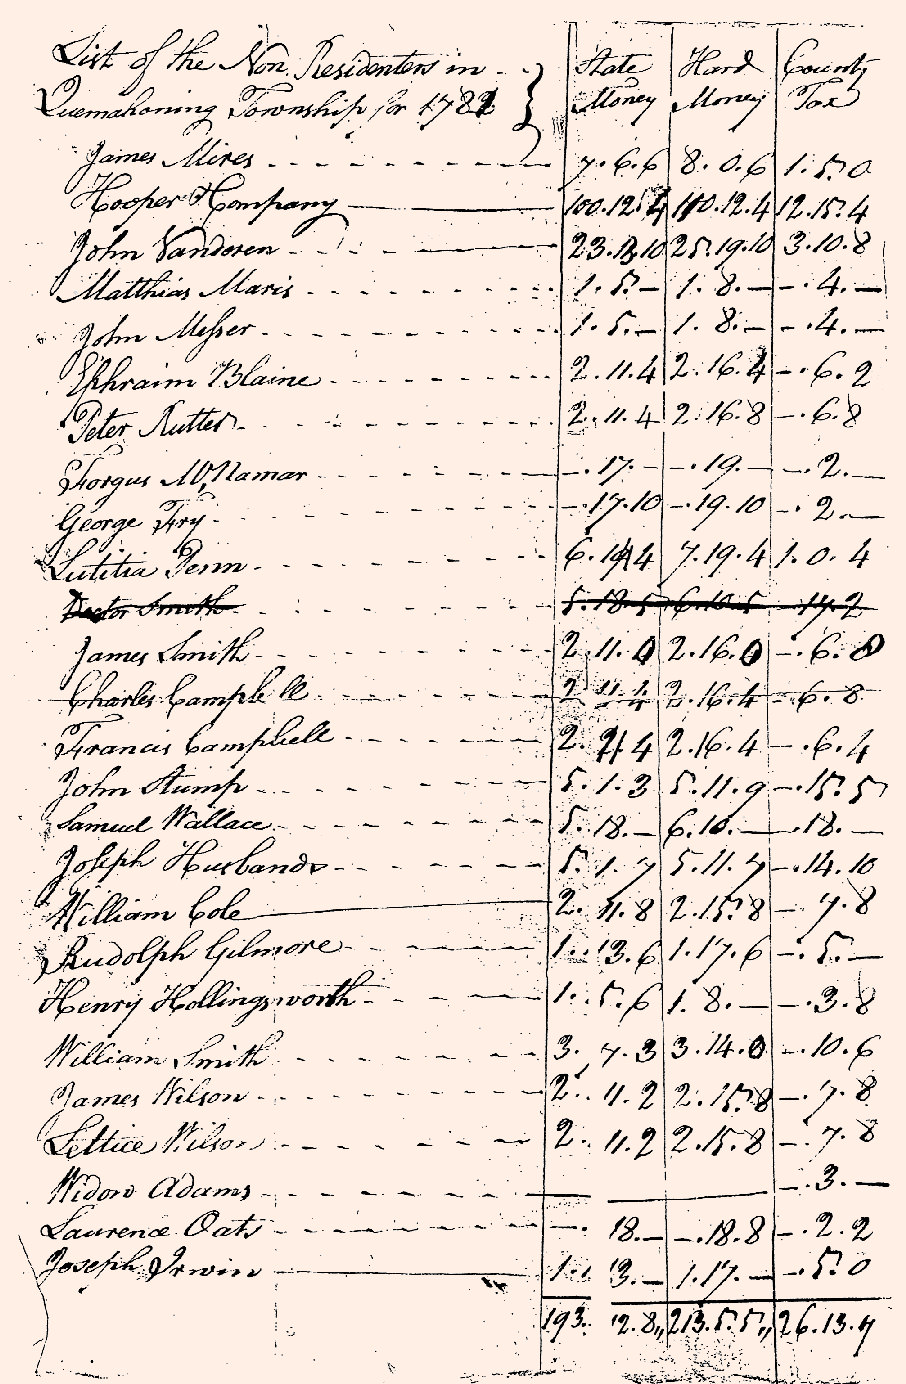 List of the Non Residenters in State Hard County
Quemahoning Township for 1782 Money Money Tax
James Mires 7.6.6 8.0.6 1.5.0
Hooper & Company 100.12.4 110.12.4 12.15.4
John Vanderen 23.13.10 25.19.10 3.10.8
Matthias Maris 1.5.— 1.8.— —.4.—
John Messer 1.5.— 1.8.— —.4.—
Ephraim Blaine 2.11.4 2.16.4 —.6.2
Peter Rutter 2.11.4 2.16.8 —.6.8
Forgus McNamar —.17.— —.19.— —.2.—
George Fry —.17.10 —.19.10 —.2.—
Lutitia Penn 6.19.4 7.19.4 1.0.4
Doctor Smith 5.18.5 6.10.5 —.17.2
James Smith 2.11.0 2.16.0 —.6.8
Charles Campbell 2.11.4 2.16.4 —.6.8
Francis Campbell 2.11.4 2.16.4 —.6.4
John Stump 5.1.3 5.11.9 —.15.5
Samuel Wallace 5.18.— 6.10.— —.18.—
Joseph Husbands 5.1.7 5.11.7 —.14.10
William Cole 2.11.8 2.15.8 —.7.8
Rudolph Gilmore 1.13.6 1.17.6 —.5.—
Henry Hollingsworth 1.5.6 1.8.— —.3.8
William Smith 3.7.3 3.14.0 —.10.6
James Wilson 2.11.2 2.15.8 —.7.8
Lettice Wilson 2.11.2 2.15.8 —.7.8
Widow Adams — — —.3.—
Laurence Oats —.18.— —.18.8 —.2.2
Joseph Irwin 1.13.— 1.17.— —.5.0
193.12.8 213.5.5 26.13.7